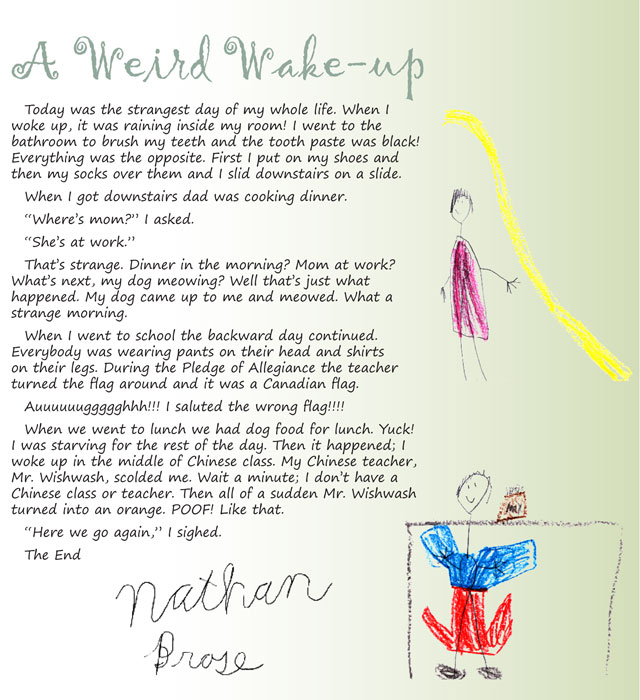 A Weird Wake-up
Today was the strangest day of my whole life. When I
woke up, it was raining inside my room! I went to the
bathroom to brush my teeth and the tooth paste was black!
Everything was the opposite. First I put on my shoes and
then my socks over them and I slid downstairs on a slide.
When I got downstairs dad was cooking dinner.
“Where’s mom?” I asked.
“She’s at work.”
That’s strange. Dinner in the morning? Mom at work?
What’s next, my dog meowing? Well that’s just what
happened. My dog came up to me and meowed. What a
strange morning.
When I went to school the backward day continued.
Everybody was wearing pants on their head and shirts
on their legs. During the Pledge of Allegiance the teacher
turned the flag around and it was a Canadian flag.
Auuuuuuggggghhh!!! I saluted the wrong flag!!!!
When we went to lunch we had dog food for lunch. Yuck!
I was starving for the rest of the day. Then it happened; I
woke up in the middle of Chinese class. My Chinese teacher,
Mr. Wishwash, scolded me. Wait a minute; I don’t have a
Chinese class or teacher. Then all of a sudden Mr. Wishwash
turned into an orange. POOF! Like that.
“Here we go again,” I sighed.
The End
Nathan
Prose